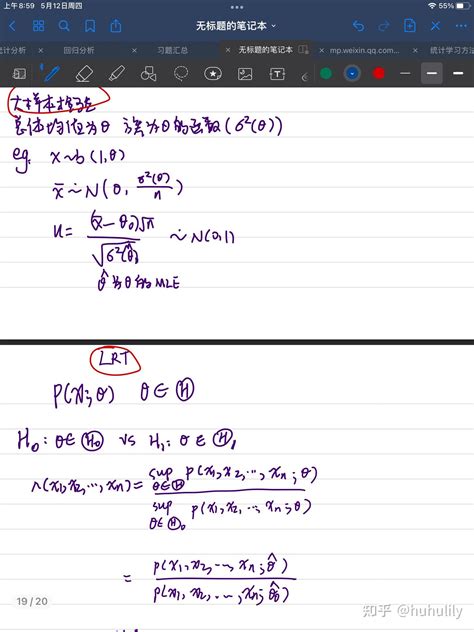 上午8:59 5月12日周四
55%
无标题的笔记本
统计分析 回归分析 习题汇总 无标题的笔记本 mp.weixin.qq.com... 统计学习方法
大样本检验
总体均值为θ 方差为θ的函数(σ²(θ))
eg. x~b(1,θ)
x̄ ∼̇ N(θ, σ²(θ)/n)
u = (x̄-θ₀)√n / √σ²(θ̂) ∼̇ N(0,1)
θ̂为θ的MLE
LRT
P(x;θ) θ∈Ⓗ
H₀: θ∈Ⓗ₀ vs H₁: θ∈Ⓗ₁
∧(x₁,x₂,…,xₙ) = sup θ∈Ⓗ p(x₁,x₂,…,xₙ;θ) / sup θ∈Ⓗ₀ p(x₁,x₂,…,xₙ;θ)
= p(x₁,x₂,…,xₙ;θ̂) / p(x₁,x₂,…,xₙ;θ̂₀)
19 / 20
知乎 @huhulily